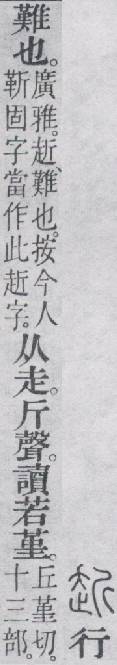 赾 行
難也。廣雅。赾、難也。按今人
靳固字當作此赾字。从走。斤聲。讀若菫。丘菫切。
十三部。